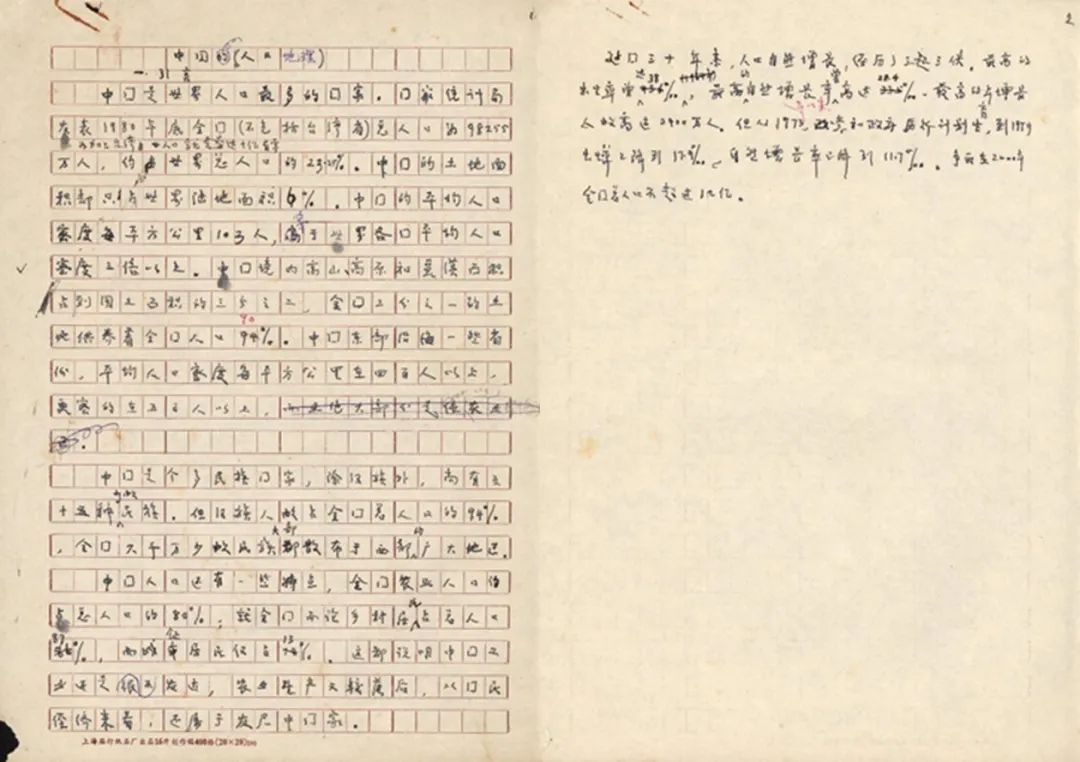 1
中国的(人口地理)
一. 引言
中囗是世界人口最多的囗家。囗家统计局
发表1980年底全囗(不包括台湾省)总人口为98255
万人，约占世界总人口的23%。中囗的土地面
积却只占世界陆地面积6%。中囗的平均人口
密度每平方公里103人，高于世界各囗平均人口
密度三倍以上。中囗境内高山、高原和荒漠面积
占到国土面积的三分之二，全囗三分之一的土
90
地供养着全囗人口94%。中囗东部沿海一些省
份，平均人口密度每平方公里在四百人以上，
更密的在五百人以上，
中囗是个多民族囗家，除汉族外，尚有五
少数
十五种民族。但汉族人数占全囗总人口的94%
大部 的
，全囗六千万少数民族都散布于西部广大地区。
中囗人口还有一些特点，全囗农业人口约
占总人口的80%，就全囗而论乡村居民占总人口
87 镇 13
%，而城市居民仅占%。这都说明中囗工
业还是很不发达，农业生产又较落后，以囗民
经济来看，还属于发展中囗家。
上海 纸品厂出品16开创作稿400格(20×20)
2
过囗三十年来，人口自然增长，经历了三起三伏。最高的
出生率曾达38‰，最高的自然增长率曾高达28.4‰。最高的年增长
人数高达2400万人。但从1973，政府厉行计划生育，到1979
出生率下降到17‰，自然增长率下降到11.7‰。争取在2000年
全囗总人口不超过12亿。